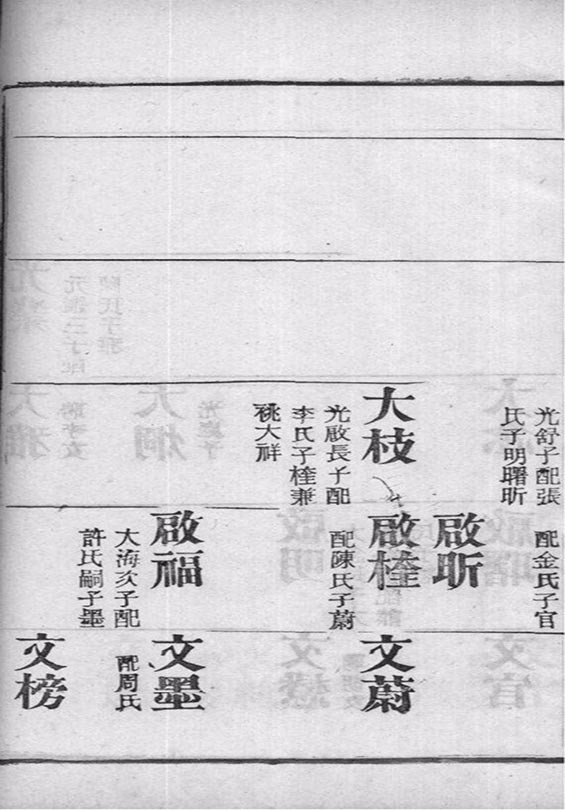 光舒子配張
氏子明曙昕
大枝
光啟長子配
李氏子桂兼
祧大祥
配金氏子官
啟昕
啟桂
配陳氏子蔚
啟福
大海次子配
許氏嗣子墨
文蔚
文墨
配周氏
文榜